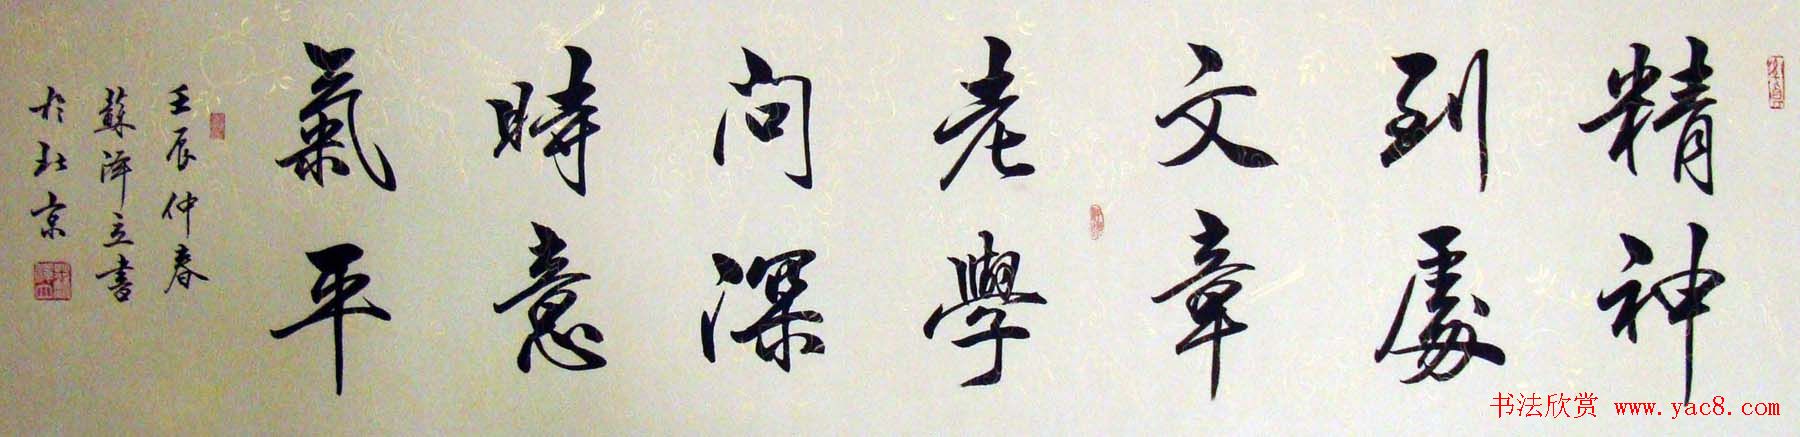 精神
到處
文章
老學
问深
時意
氣平
壬辰仲春
蘇澤立書
於北京
书法欣赏 www.yac8.com